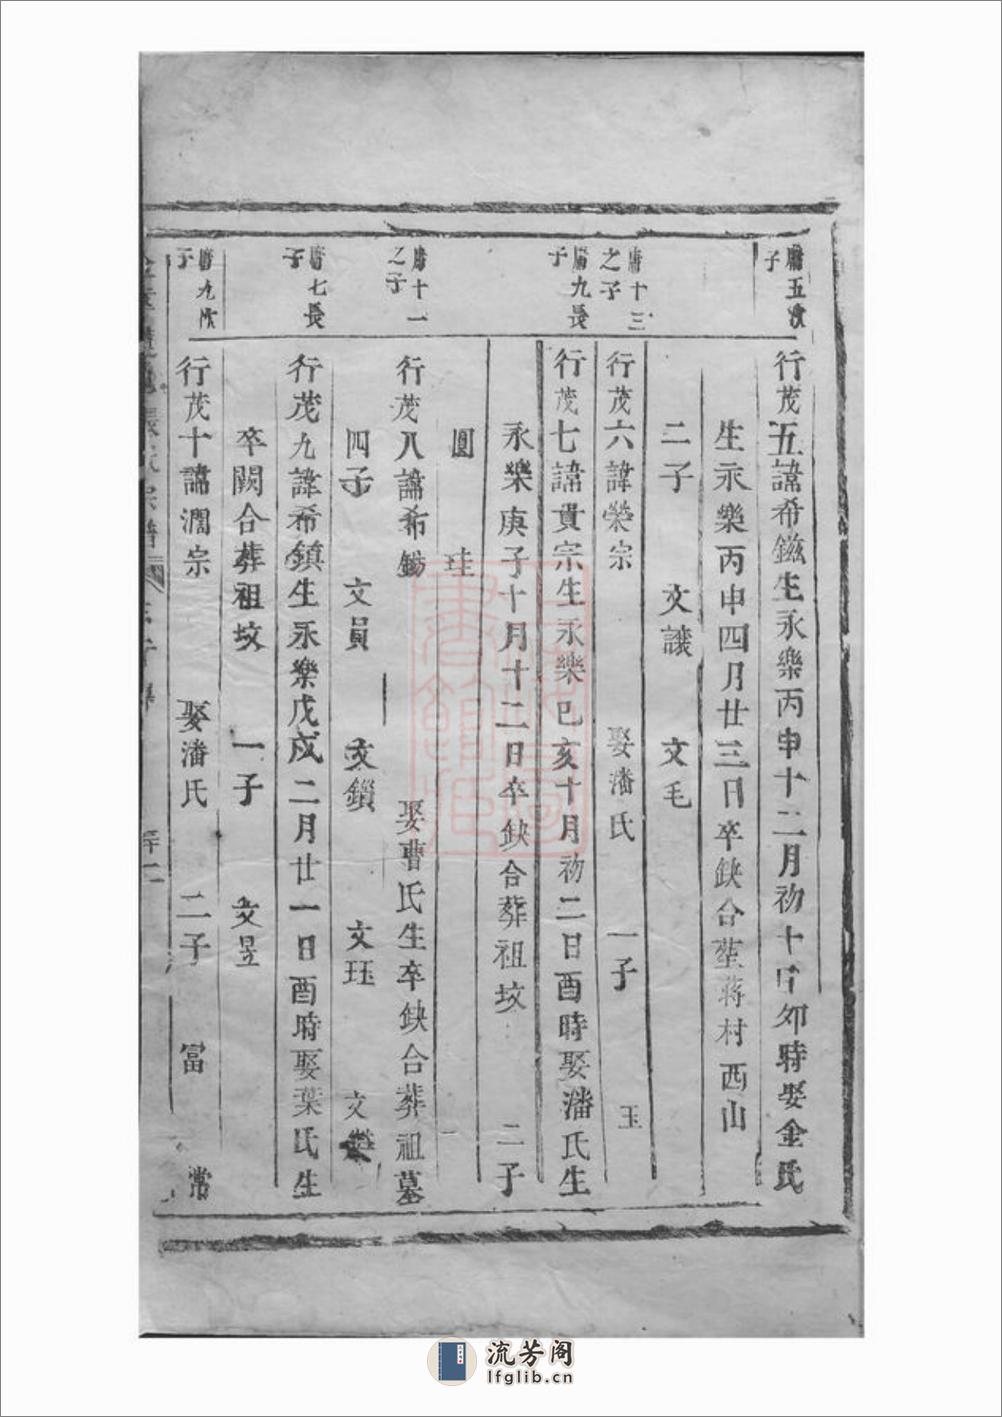 五次
子
行茂五諱希鎡生永樂丙申十二月初十日卯時娶金氏
生永樂丙申四月廿三日卒缺合塟蔣村西山
二子 文讓 文毛
十三
之子
行茂六諱榮宗 娶潘氏 一子 玉
九長
子
行茂七諱貴宗生永樂己亥十月初二日酉時娶潘氏生
永樂庚子十月十二日卒缺合葬祖坟 二子
圓 珪
十一
之子
行茂八諱希鍚 娶曹氏生卒缺合葬祖墓
四子 文員 文鎖 文珏 文
七長
子
行茂九諱希鎮生永樂戊戌二月廿一日酉時娶葉氏生
卒闕合葬祖坟 一子 文昱
九次
子
行茂十諱濶宗 娶潘氏 二子 富 常
氏宗譜
流芳阁
lfglib.cn